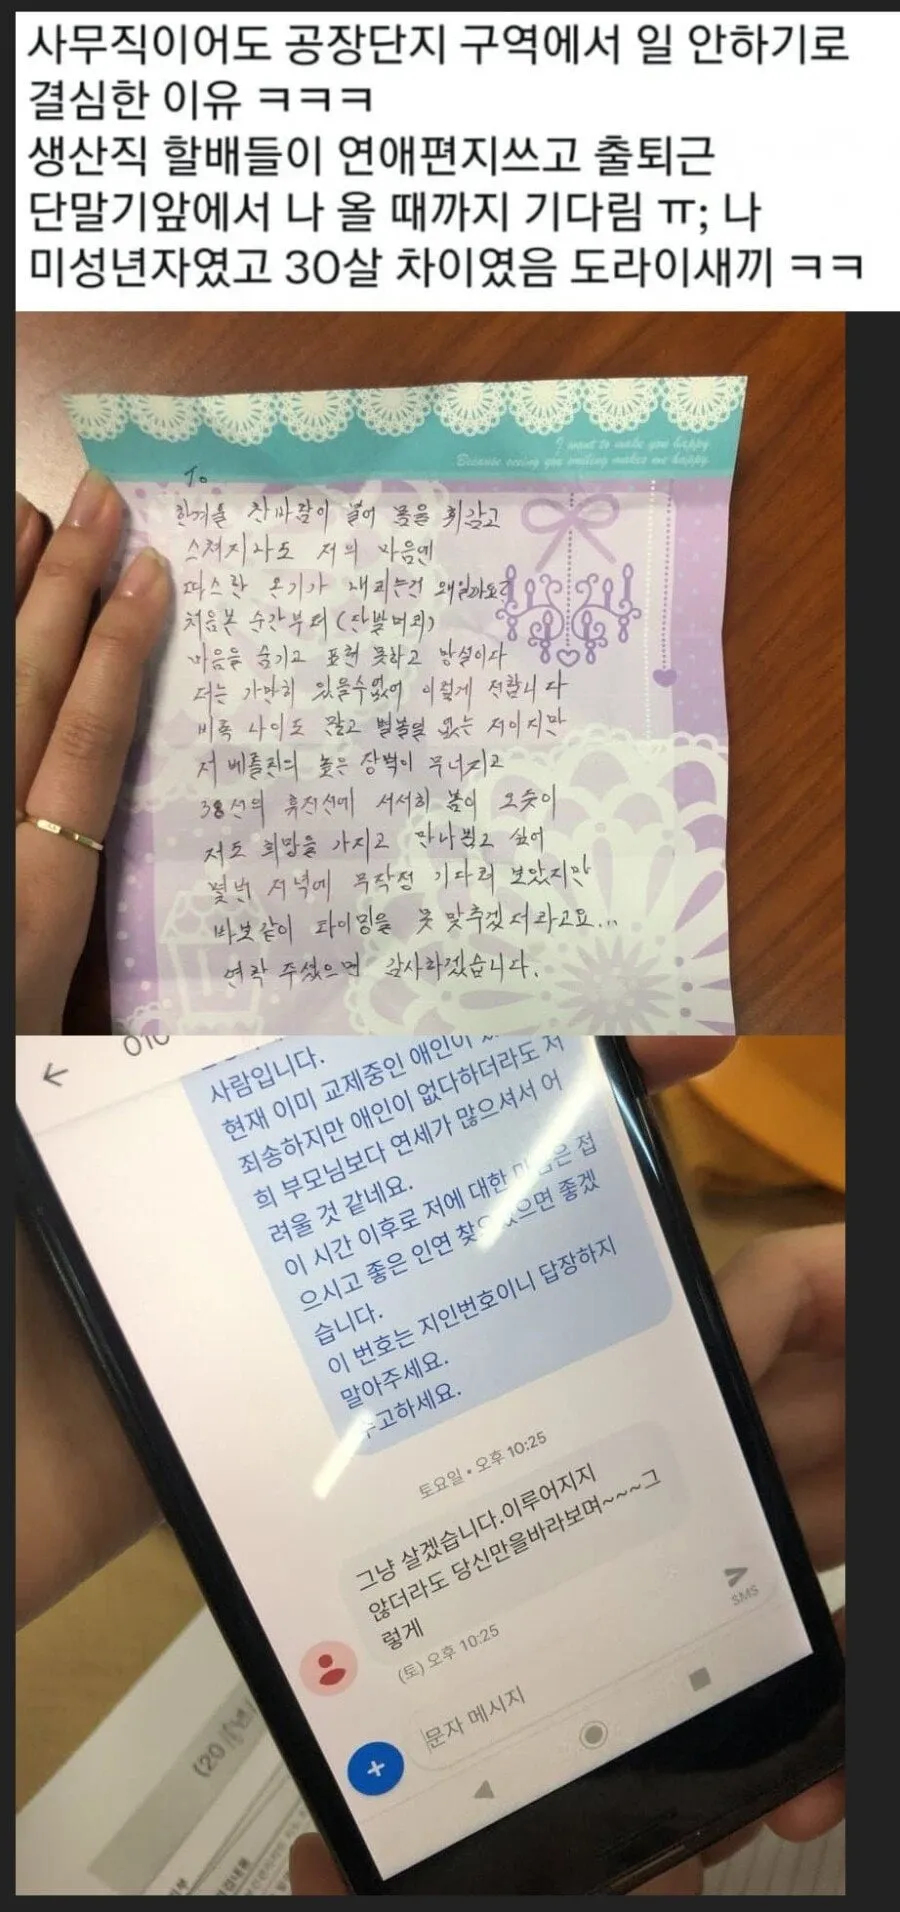 사무직이어도 공장단지 구역에서 일 안하기로
결심한 이유 ㅋㅋㅋ
생산직 할배들이 연애편지쓰고 출퇴근
단말기앞에서 나 올 때까지 기다림 ㅠ; 나
미성년자였고 30살 차이였음 도라이새끼 ㅋㅋ
I want to make you happy
Because seeing you smiling makes me happy
To
한겨울 찬바람이 불어 몸을 휘감고
스쳐지나도 저의 마음엔
따스한 온기가 내리는건 왜일까요?
처음본 순간부터 (단발머리)
마음을 숨기고 표현 못하고 망설이다
더는 가만히 있을수없어 이렇게 전합니다
비록 나이도 많고 별볼일 없는 저이지만
저 베를린의 높은 장벽이 무너지고
38선의 휴전선에 서서히 봄이 오듯이
저도 희망을 가지고 만나뵙고 싶어
몇번 저녁에 무작정 기다려 보았지만
바보같이 타이밍을 못 맞추겠더라고요...
연락 주셨으면 감사하겠습니다.
010
사람입니다.
현재 이미 교제중인 애인이
죄송하지만 애인이 없다하더라도 저
희 부모님보다 연세가 많으셔서 어
려울 것 같네요.
이 시간 이후로 저에 대한 접
으시고 좋은 인연 좋겠
습니다.
이 번호는 지인번호이니 답장하지
말아주세요.
수고하세요.
토요일 • 오후 10:25
그냥 살겠습니다.이루어지지
않더라도 당신만을바라보며~~~그
렇게
(토) 오후 10:25
SMS
문자 메시지
(20